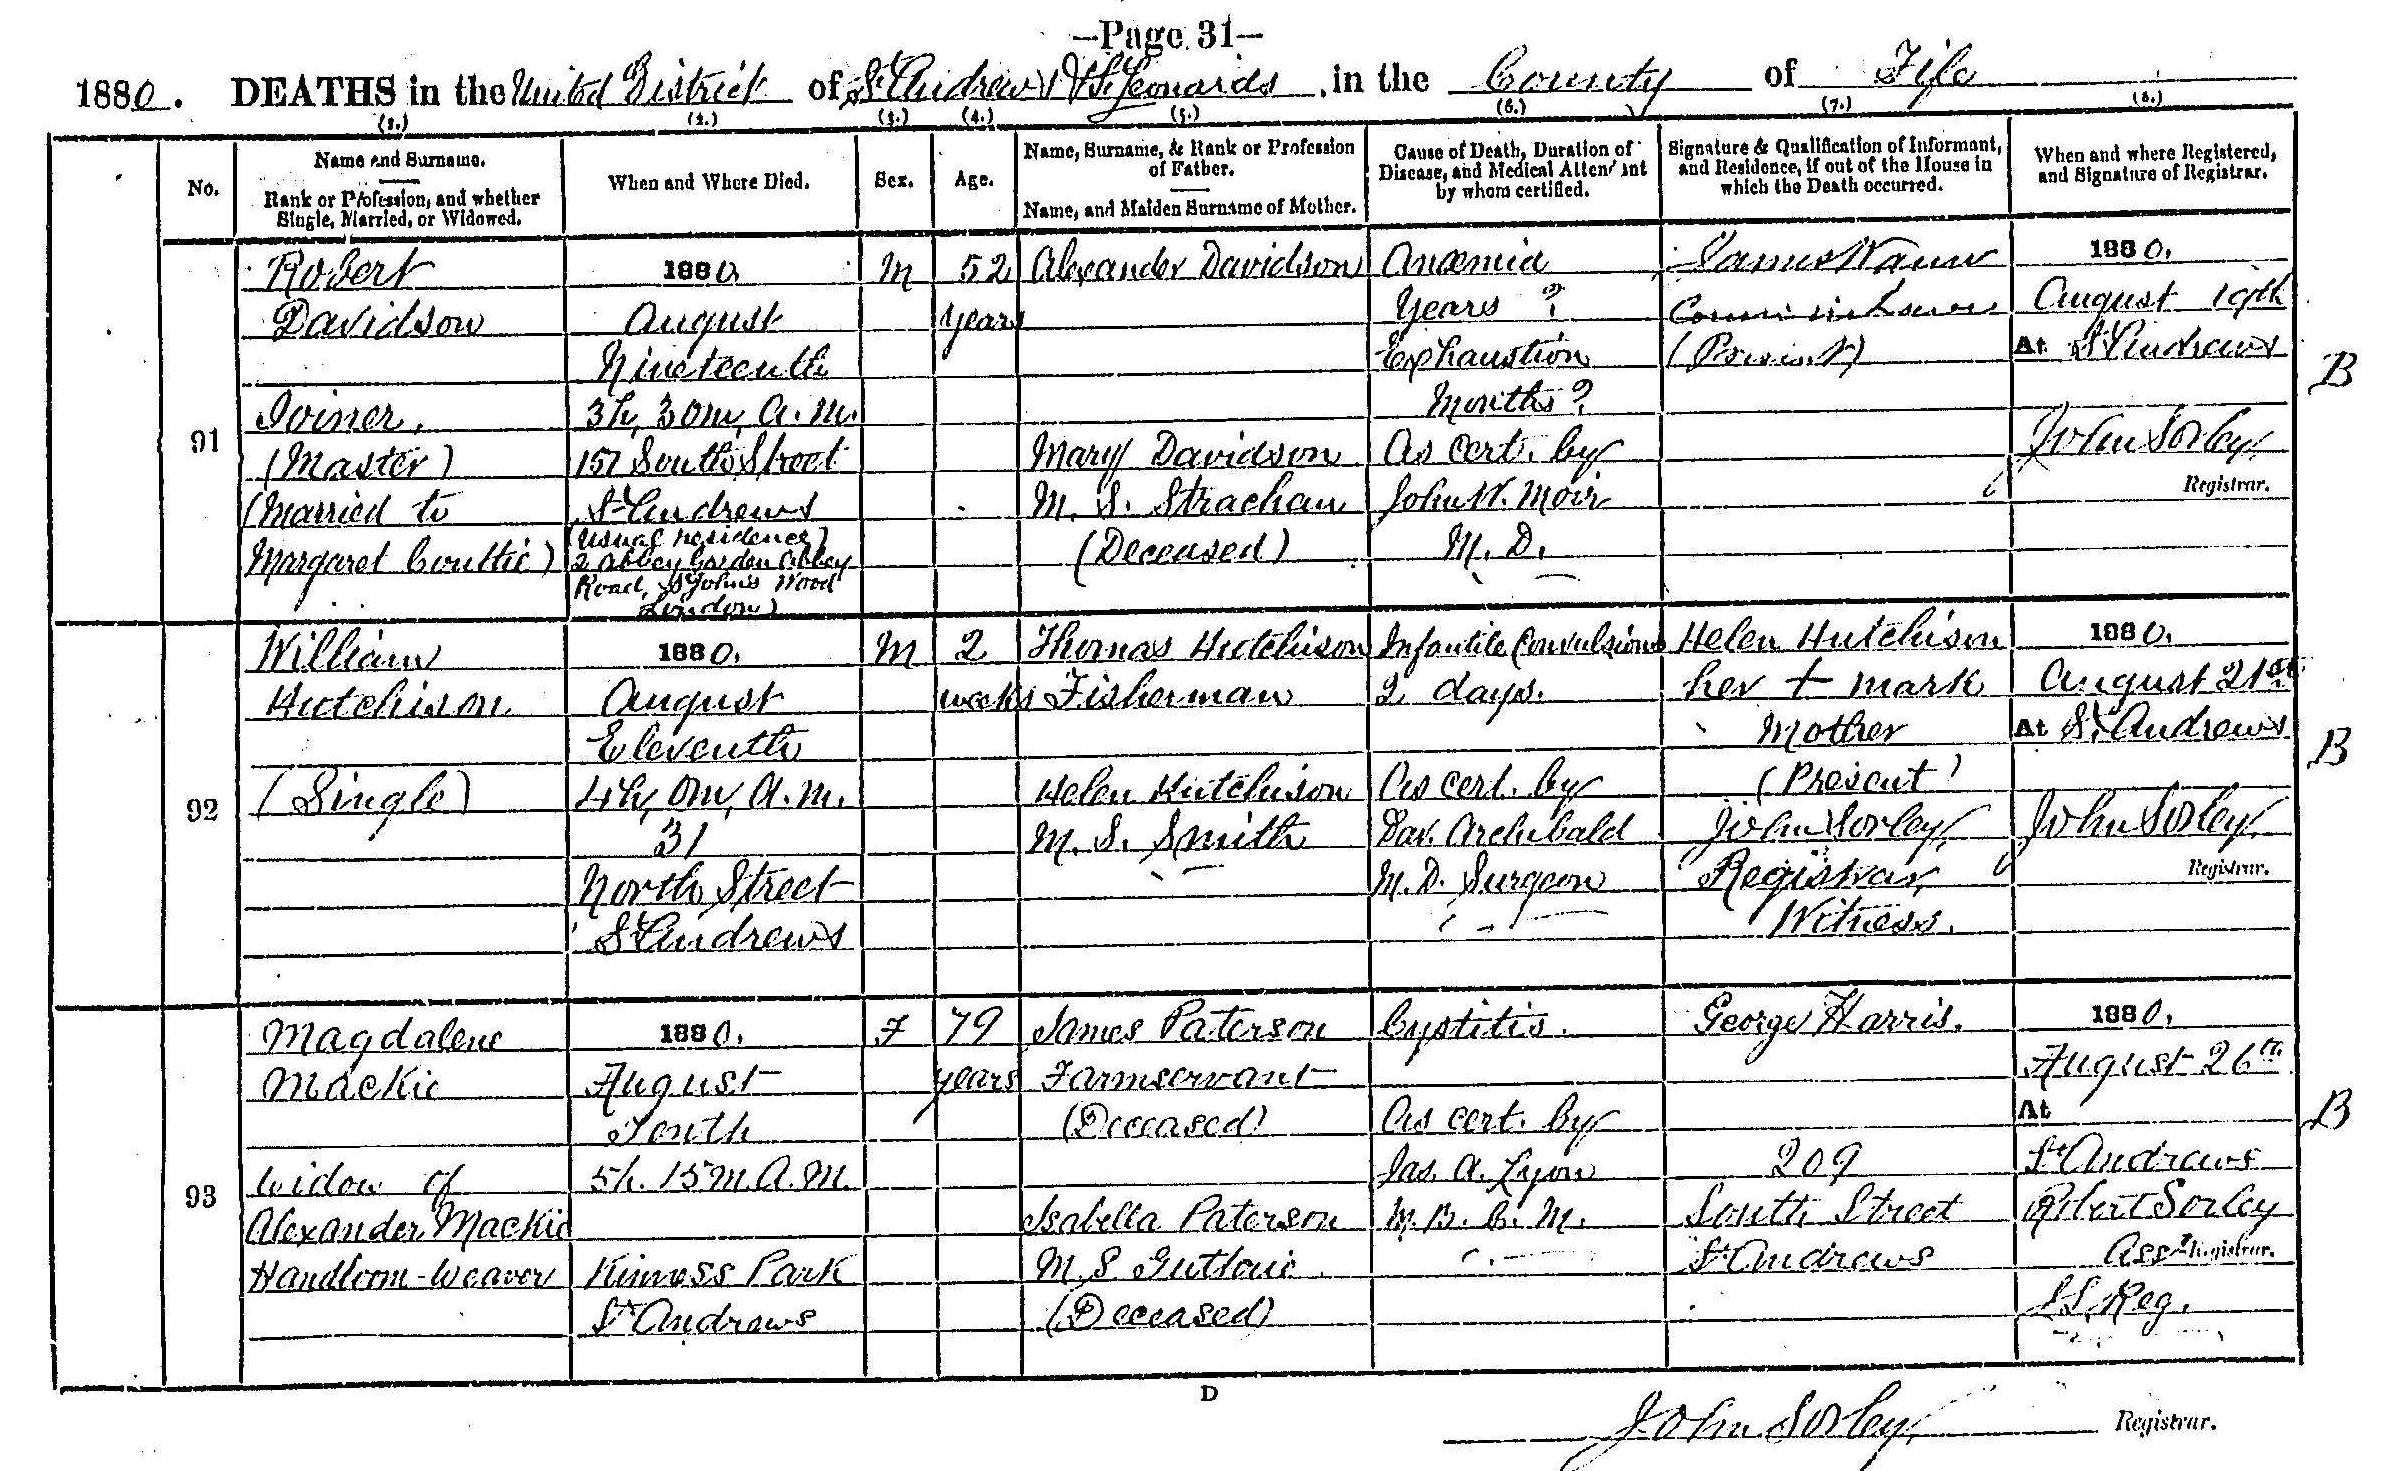 —Page 31—
1880. DEATHS in the United District of St Andrews & St Leonards in the County of Fife
(1.) (2.) (3.) (4.) (5.) (6.) (7.) (8.)
No.
Name and Surname.
Rank or Profession, and whether
Single, Married, or Widowed.
When and Where Died.
Sex.
Age.
Name, Surname, & Rank or Profession
of Father.
Name, and Maiden Surname of Mother.
Cause of Death, Duration of
Disease, and Medical Attendant
by whom certified.
Signature & Qualification of Informant,
and Residence, if out of the House in
which the Death occurred.
When and where Registered,
and Signature of Registrar.
91
Robert
Davidson
Joiner,
(Master)
(Married to
Margaret Couttie)
1880
August
Nineteenth
3h, 30m, A.M.
151 South Street
St Andrews
(Usual residence)
2 Abbey Garden Abbey
Road, St John's Wood
London)
M
52
years
Alexander Davidson
Mary Davidson
M. S. Strachan
(Deceased)
Anæmia
Years ?
Exhaustion
Months ?
As cert. by
John W. Moir
M. D.
James
(Present)
1880.
August 19th
At St Andrews
John Sorley,
Registrar.
B
92
William
Hutchison
(Single)
1880.
August
Eleventh
4h, 0m, A.M.
31
North Street
St Andrews
M
2
weeks
Thomas Hutchison
Fisherman
Helen Hutchison
M. S. Smith
Infantile Convulsions
2 days.
As cert. by
Dav. Archibald
M. D. Surgeon
Helen Hutchison
her + mark
Mother
(Present)
John Sorley,
Registrar,
Witness.
1880.
August 21st
At St Andrews
John Sorley,
Registrar.
B
93
Magdalene
Mackie
Widow of
Alexander Mackie
Handloom-Weaver
1880.
August
Tenth
5h. 15m. A.M.
Kinness Park
St Andrews
F
79
years
James Paterson
Farmservant
(Deceased)
Isabella Paterson
M. S. Guthrie
(Deceased)
Cystitis.
As cert. by
Jas. A. Lyon
M. B. C. M.
George Harris.
209
South Street
St Andrews
1880.
August 26th
At
St Andrews
Robert Sorley
Asst Registrar.
J.S. Reg.
B
D
John Sorley, Registrar.